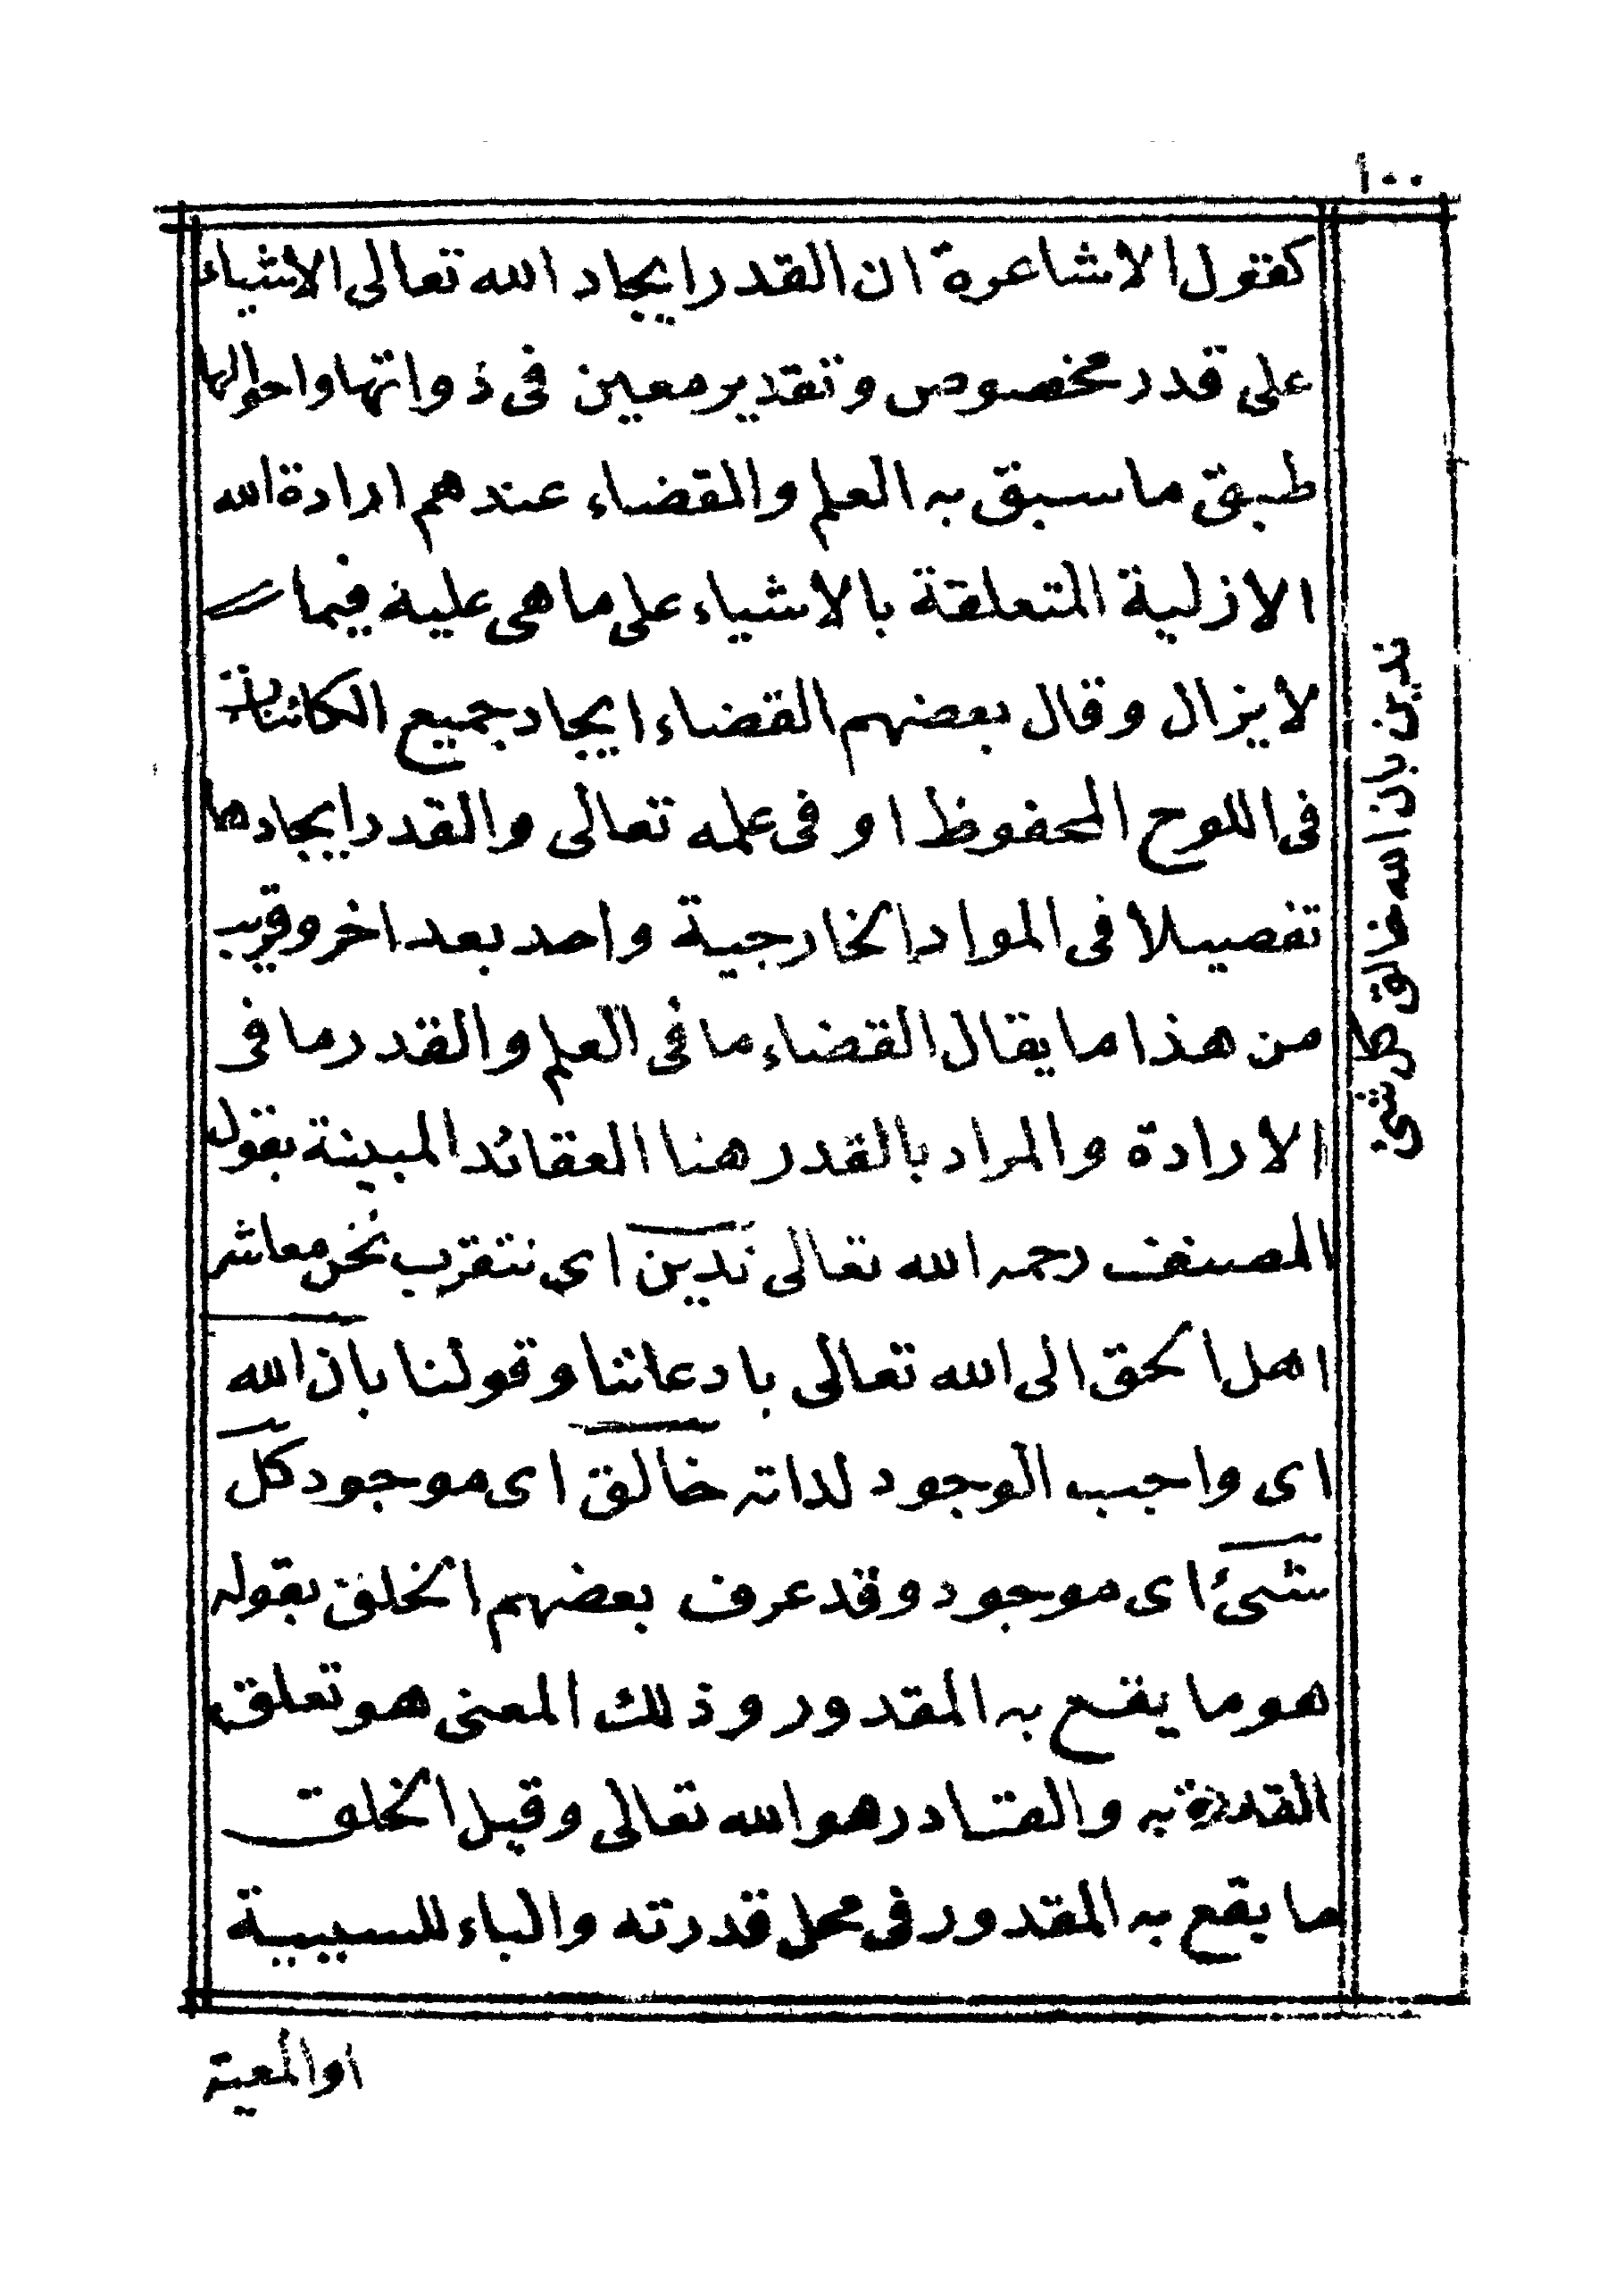 ١٠٠
كقول الاشاعرة ان القدر ايجاد الله تعالى الاشياء
على قدر مخصوص وتقدير معين فى ذواتها واحوالها
طبق ما سبق به العلم والقضاء عندهم ارادة الله
الازلية المتعلقة بالاشياء على ما هى عليه فيما
لا يزال وقال بعضهم القضاء ايجاد جميع الكائنات
فى اللوح المحفوظ او فى علمه تعالى والقدر ايجادها
تفصيلا فى المواد الخارجية واحد بعد اخر وقريب
من هذا ما يقال القضاء ما فى العلم والقدر ما فى
الارادة والمراد بالقدر هنا العقائد المبينة بقول
المصنف رحمه الله تعالى ندين اى نتقرب نحن معاشر
اهل الحق الى الله تعالى بادعائنا وقولنا بان الله
اى واجب الوجود لذاته خالق اى موجود كل
شىء اى موجود وقد عرف بعضهم الخلق بقوله
هو ما يقع به المقدور وذلك المعنى هو تعلق
القدرة به والقادر هو الله تعالى وقيل الخلق
ما يقع به المقدور فى محل قدرته والباء للسببية
او المعية
ندين بان الله خالق كل شئ